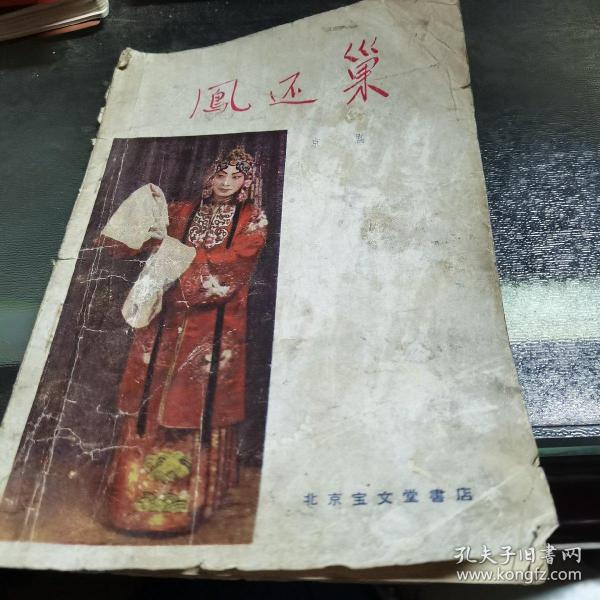 鳳还巢
京剧
北京宝文堂書店
孔夫子旧書网
www.kongfz.com